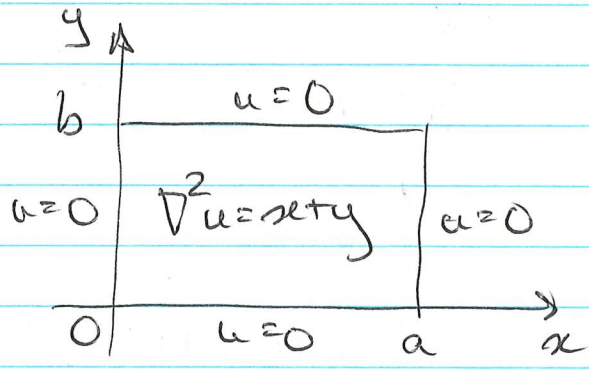 y
u = 0
b
u=0 ∇²u=x+y u=0
0 u=0 a x